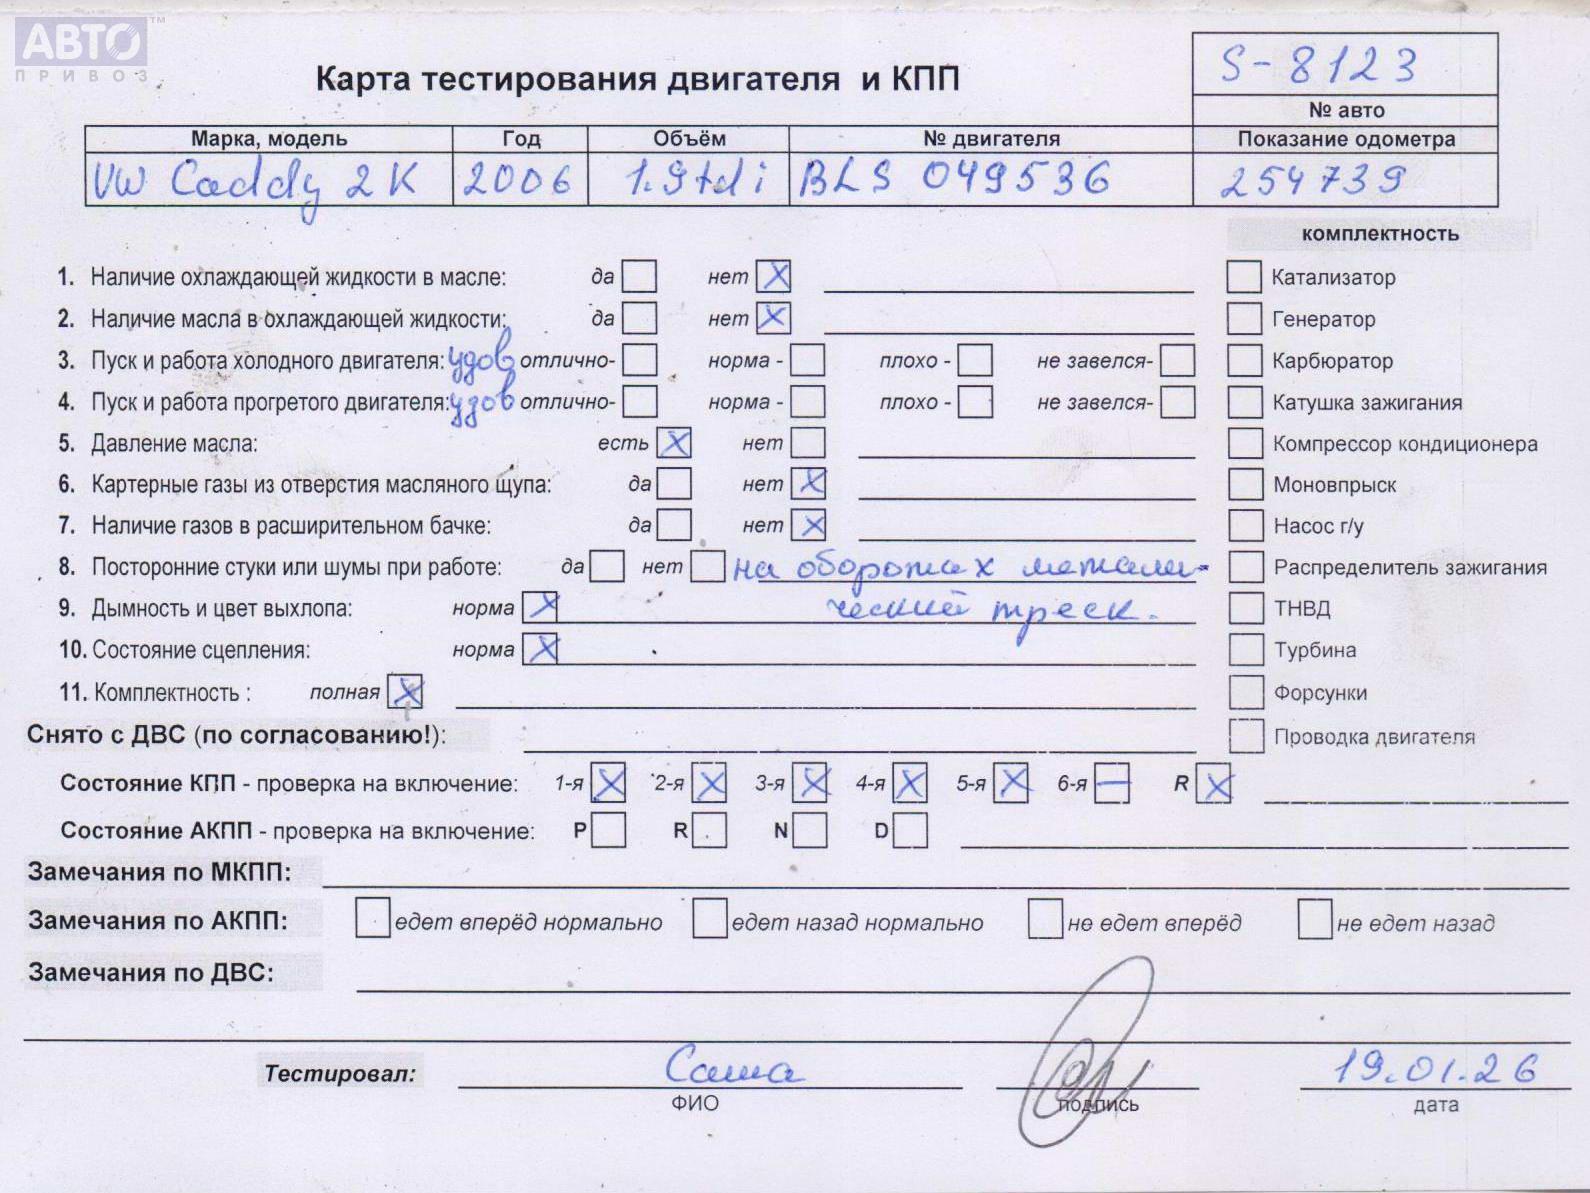 АВТО™
ПРИВОЗ
S-8123
Карта тестирования двигателя и КПП
№ авто
Марка, модель Год Объём № двигателя Показание одометра
VW Caddy 2K 2006 1.9tdi BLS 049536 254739
комплектность
1. Наличие охлаждающей жидкости в масле: да нет X Катализатор
2. Наличие масла в охлаждающей жидкости: да нет X Генератор
3. Пуск и работа холодного двигателя: удов отлично- норма - плохо - не завелся- Карбюратор
4. Пуск и работа прогретого двигателя: удов отлично- норма - плохо - не завелся- Катушка зажигания
5. Давление масла: есть X нет Компрессор кондиционера
6. Картерные газы из отверстия масляного щупа: да нет X Моновпрыск
7. Наличие газов в расширительном бачке: да нет X Насос г/у
8. Посторонние стуки или шумы при работе: да нет на оборотах металли- Распределитель зажигания
9. Дымность и цвет выхлопа: норма X ческий треск. ТНВД
10. Состояние сцепления: норма X Турбина
11. Комплектность : полная X Форсунки
Снято с ДВС (по согласованию!): Проводка двигателя
Состояние КПП - проверка на включение: 1-я X 2-я X 3-я X 4-я X 5-я X 6-я — R X
Состояние АКПП - проверка на включение: P R N D
Замечания по МКПП:
Замечания по АКПП: едет вперёд нормально едет назад нормально не едет вперёд не едет назад
Замечания по ДВС:
Тестировал: Саша 19.01.26
ФИО подпись дата